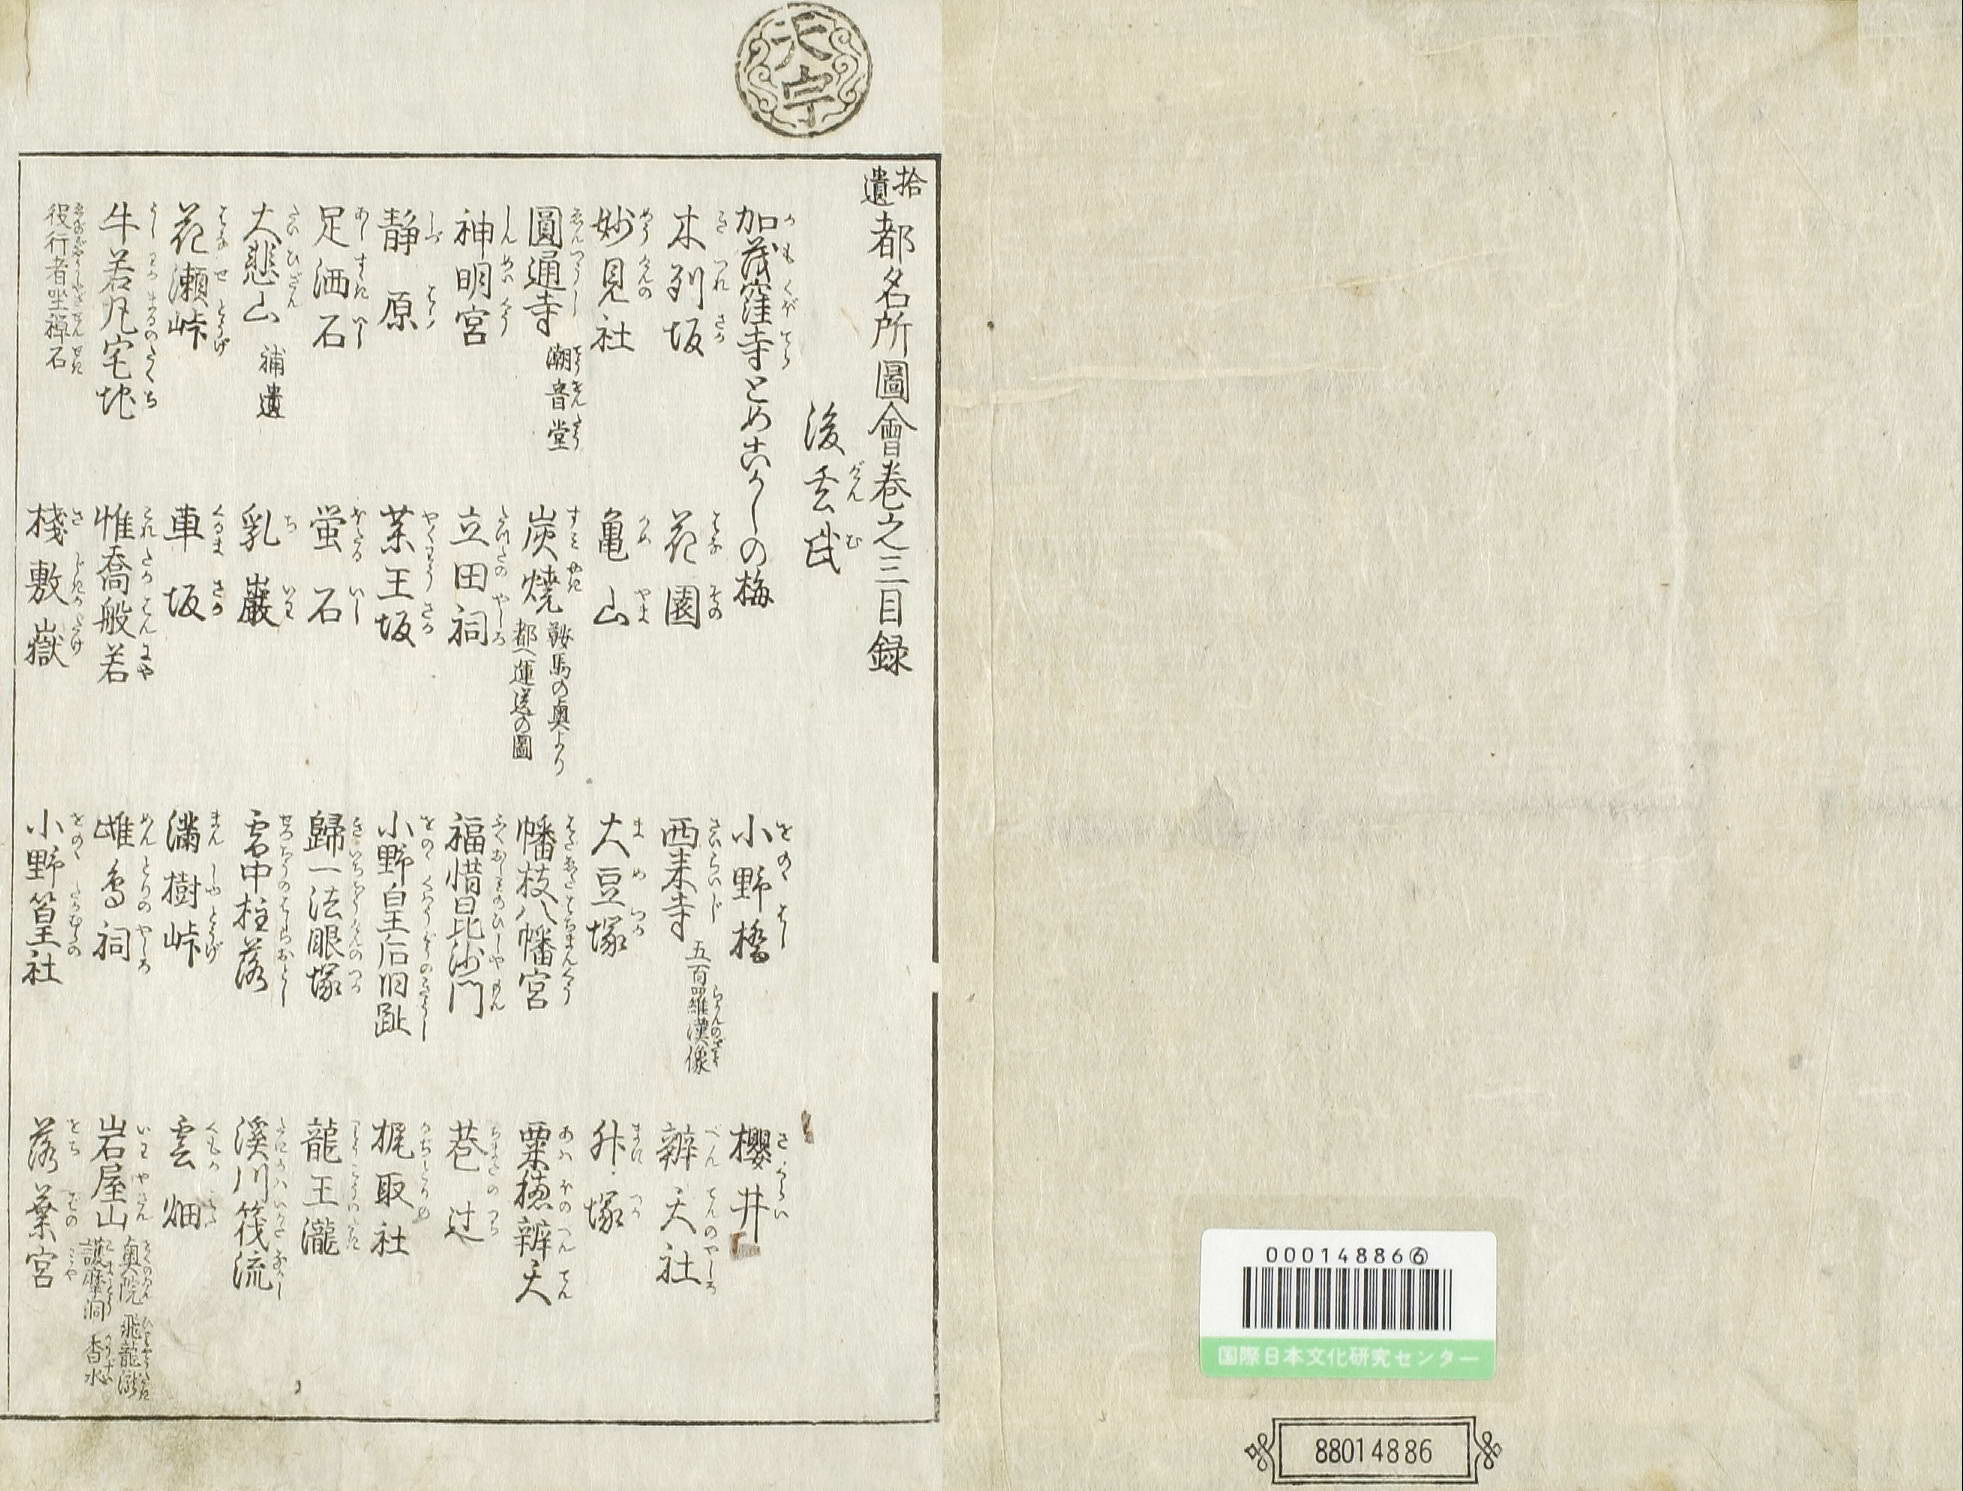 天宁
拾遺都名所圖會巻之三目録
後玄武
加茂窪寺とめこかしの梅 小野橋 櫻井
木列坂 花園 西来寺 五百羅漢像 辨天社
妙見社 亀山 大豆塚 舛塚
圓通寺 潮音堂 炭焼 鞍馬の奥より都へ運送の圖 幡枝八幡宮 粟穂辨天
神明宮 立田祠 福惜毘沙門 巷辻
静原 薬王坂 小野皇后旧趾 梶取社
足洒石 蛍石 歸一法眼塚 龍王瀧
大悲山 補遺 乳巖 雲中柱落 溪川筏流
花瀬峠 車坂 満樹峠 雲畑
牛若丸宅地 惟喬般若 雌鳥祠 岩屋山 奥院 飛龍瀧 護摩洞 香水
役行者坐禅石 棧敷嶽 小野篁社 落葉宮
00014886⑥
国際日本文化研究センター
88014886